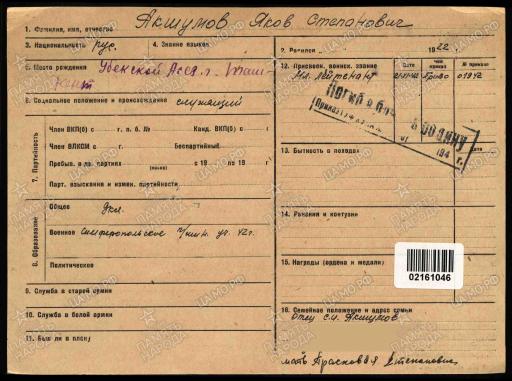 1. Фамилия, имя, отчество Акшумов Яков Степанович
3. Национальность рус. 4. Знание языков
2. Родился 1922 г.
5. Место рождения Узбекской ССР г. Таш-
кент
6. Социальное положение и происхождение служащий
7. Партийность
Член ВКП(б) с г. п. б. № Канд. ВКП(б) с г.
Член ВЛКСМ с Беспартийный
Пребыв. в др. партиях с 19 по 19 г.
Парт. взыскания и измен. партийности
8. Образование
Общее 9 кл.
Военное Симферопольское уч. 42 г.
Политическое
9. Служба в старой армии
10. Служба в белой армии
11. Был ли в плену
12. Присвоен. воинск. звание Дата чей приказ № приказа
Мл. Лейтенант 01942
Погиб в боях за Родину
194 г.
13. Бытность в походах Дата
14. Ранения и контузии
15. Награды (ордена и медали)
02161046
16. Семейное положение и адрес семьи
Отец Ст. Акшумов
мать Прасковья Степановна
ЦАМО.РФ
ПАМЯТЬ НАРОДА